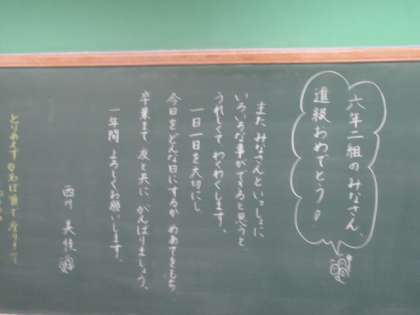 六年二組のみなさん、
進級おめでとう!
また みなさんと いっしょに
いろいろな事ができると思うと
うれしくて わくわくします。
一日一日を大切にし
今日をどんな日にするか めあてをもち
卒業まで 友と共に がんばりましょう。
一年間、よろしくお願いします。
西川